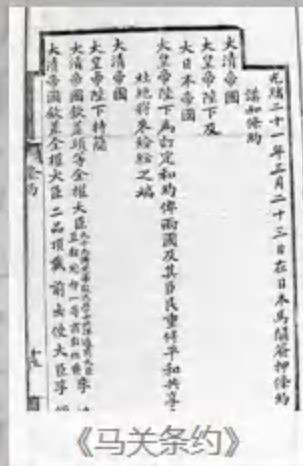 光緒二十一年三月二十三日在日本馬關簽押條約
講和條約
大清帝國
大皇帝陛下及
大日本帝國
大皇帝陛下為訂定和約俾兩國及其臣民重修平和共享
杜絕將來紛紜之端
大清帝國
大皇帝陛下特簡
大清帝國欽差頭等全權大臣
大清帝國欽差全權大臣二品頂戴前出使大臣李
《马关条约》